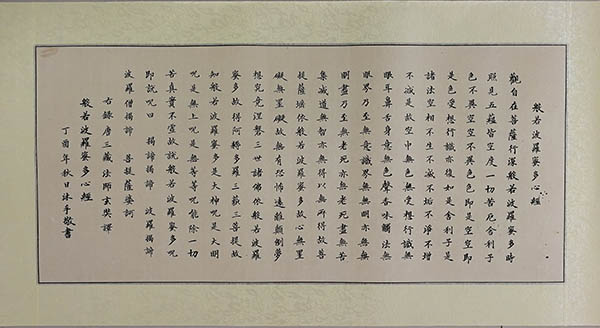 般若波羅蜜多心經
觀自在菩薩行深般若波羅蜜多時
照見五蘊皆空度一切苦厄舍利子
色不異空空不異色色即是空空即
是色受想行識亦復如是舍利子是
諸法空相不生不滅不垢不淨不增
不減是故空中無色無受想行識無
眼耳鼻舌身意無色聲香味觸法無
眼界乃至無意識界無無明亦無無
明盡乃至無老死亦無老死盡無苦
集滅道無智亦無得以無所得故菩
提薩埵依般若波羅蜜多故心無罣
礙無罣礙故無有恐怖遠離顛倒夢
想究竟涅槃三世諸佛依般若波羅
蜜多故得阿耨多羅三藐三菩提故
知般若波羅蜜多是大神呪是大明
呪是無上呪是無等等呪能除一切
苦真實不虛故說般若波羅蜜多呪
即說呪曰 揭諦揭諦 波羅揭諦
波羅僧揭諦 菩提薩婆訶
右錄唐三藏法師玄奘譯
般若波羅蜜多心經
丁酉年秋日沐手敬書